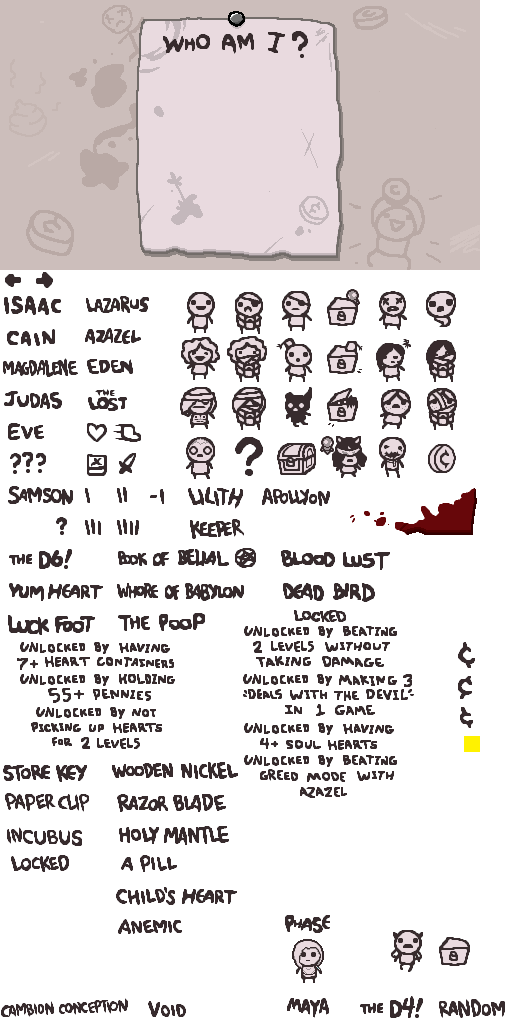 WHO AM I?
ISAAC LAZARUS
CAIN AZAZEL
MAGDALENE EDEN
JUDAS THE LOST
EVE
???
?
SAMSON I II -I LILITH APOLLYON
? III IIII KEEPER
THE D6! BOOK OF BELIAL BLOOD LUST
YUM HEART WHORE OF BABYLON DEAD BIRD
LUCK FOOT THE POOP
LOCKED
UNLOCKED BY HAVING
7+ HEART CONTAINERS
UNLOCKED BY HOLDING
55+ PENNIES
UNLOCKED BY NOT
PICKING UP HEARTS
FOR 2 LEVELS
UNLOCKED BY BEATING
2 LEVELS WITHOUT
TAKING DAMAGE
UNLOCKED BY MAKING 3
"DEALS WITH THE DEVIL"
IN 1 GAME
UNLOCKED BY HAVING
4+ SOUL HEARTS
UNLOCKED BY BEATING
GREED MODE WITH
AZAZEL
¢
¢
¢
STORE KEY WOODEN NICKEL
PAPER CLIP RAZOR BLADE
INCUBUS HOLY MANTLE
LOCKED A PILL
CHILD'S HEART
ANEMIC
PHASE
CAMBION CONCEPTION VOID MAYA THE D4! RANDOM